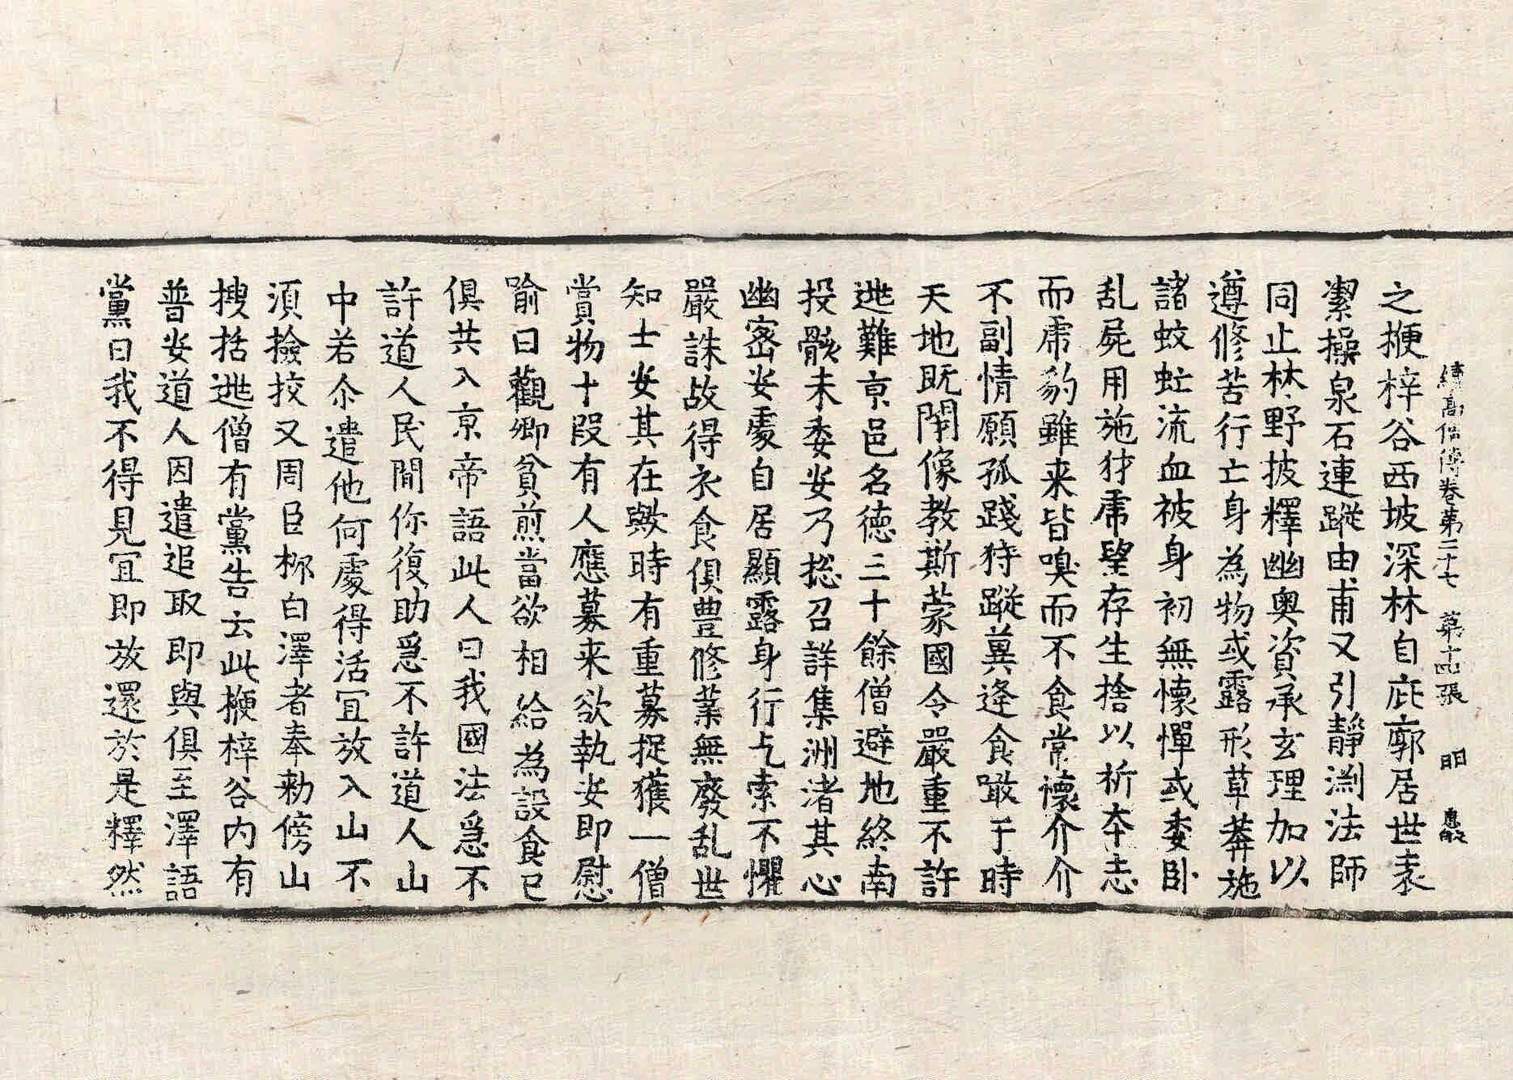 續高僧傳卷第二十七　第十四張　明
之挭梓谷西坡深林自庇廓居世表
潔操泉石連蹤由甫又引靜渊法師
同止林野披釋幽奧資承玄理加以
遵修苦行亡身為物或露形草莽施
諸蚊虻流血被身初無懷憚或委卧
乱屍用施犲虎望存生捨以祈夲志
而虎豹雖来皆嗅而不食常懷介介
不副情願孤踐狩蹤冀逢食噉于時
天地既閇像教斯蒙國令嚴重不許
逃難京邑名徳三十餘僧避地終南
投骸未委安乃捴召詳集洲渚其心
幽密安處自居顯露身行乞索不懼
嚴誅故得衣食俱豊修業無廢乱世
知士安其在歟時有重募捉獲一僧
賞物十段有人應募来欲執安即慰
喻曰觀卿貧煎當欲相給為設食已
俱共入京帝語此人曰我國法急不
許道人民間你復助急不許道人山
中若尒遣他何處得活冝放入山不
湏撿挍又周臣栁白澤者奉勑傍山
搜括逃僧有黨告云此挭梓谷内有
普安道人因遣追取即與俱至澤語
黨曰我不得見冝即放還於是釋然